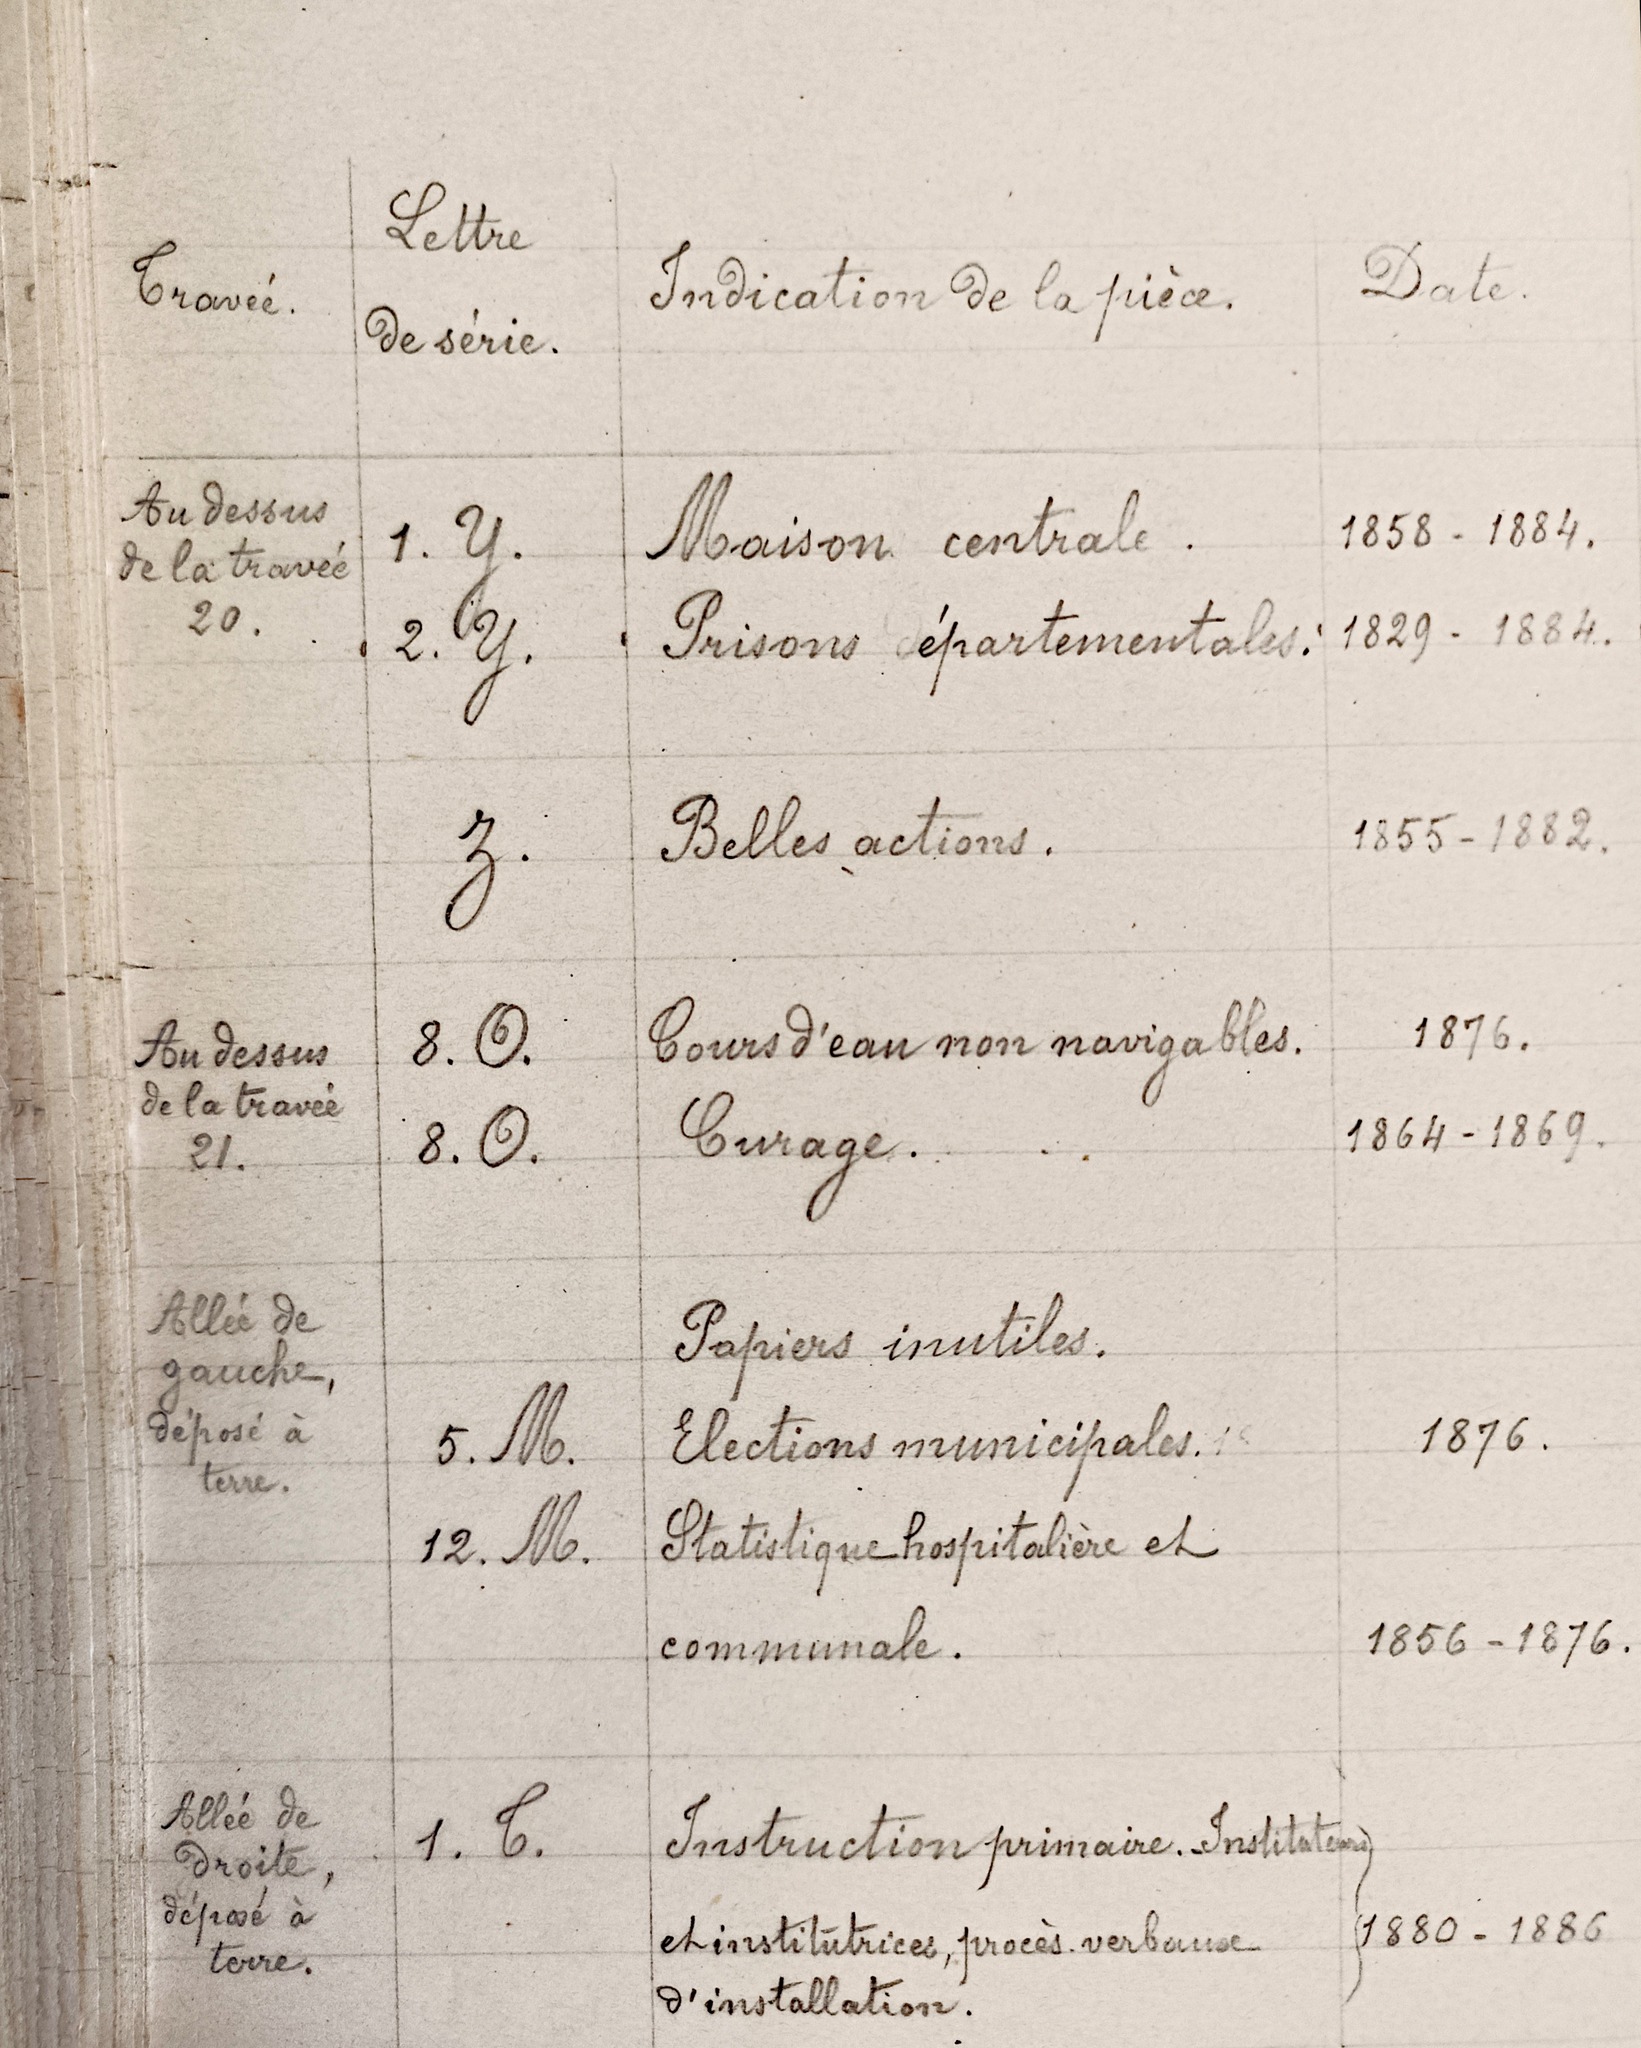 Travée. Lettre de série. Indication de la pièce. Date.
Au dessus
de la travée
20.
1. Y. Maison centrale. 1858 - 1884.
2. Y. Prisons départementales. 1829 - 1884.
Z. Belles actions. 1855 - 1882.
Au dessus
de la travée
21.
8. O. Cours d'eau non navigables. 1876.
8. O. Curage. 1864 - 1869.
Allée de
gauche,
déposé à
terre.
Papiers inutiles.
5. M. Elections municipales. 1876.
12. M. Statistique hospitalière et
communale. 1856 - 1876.
Allée de
droite,
déposé à
terre.
1. T. Instruction primaire. Instituteurs
et institutrices, procès-verbaux 1880 - 1886
d'installation.